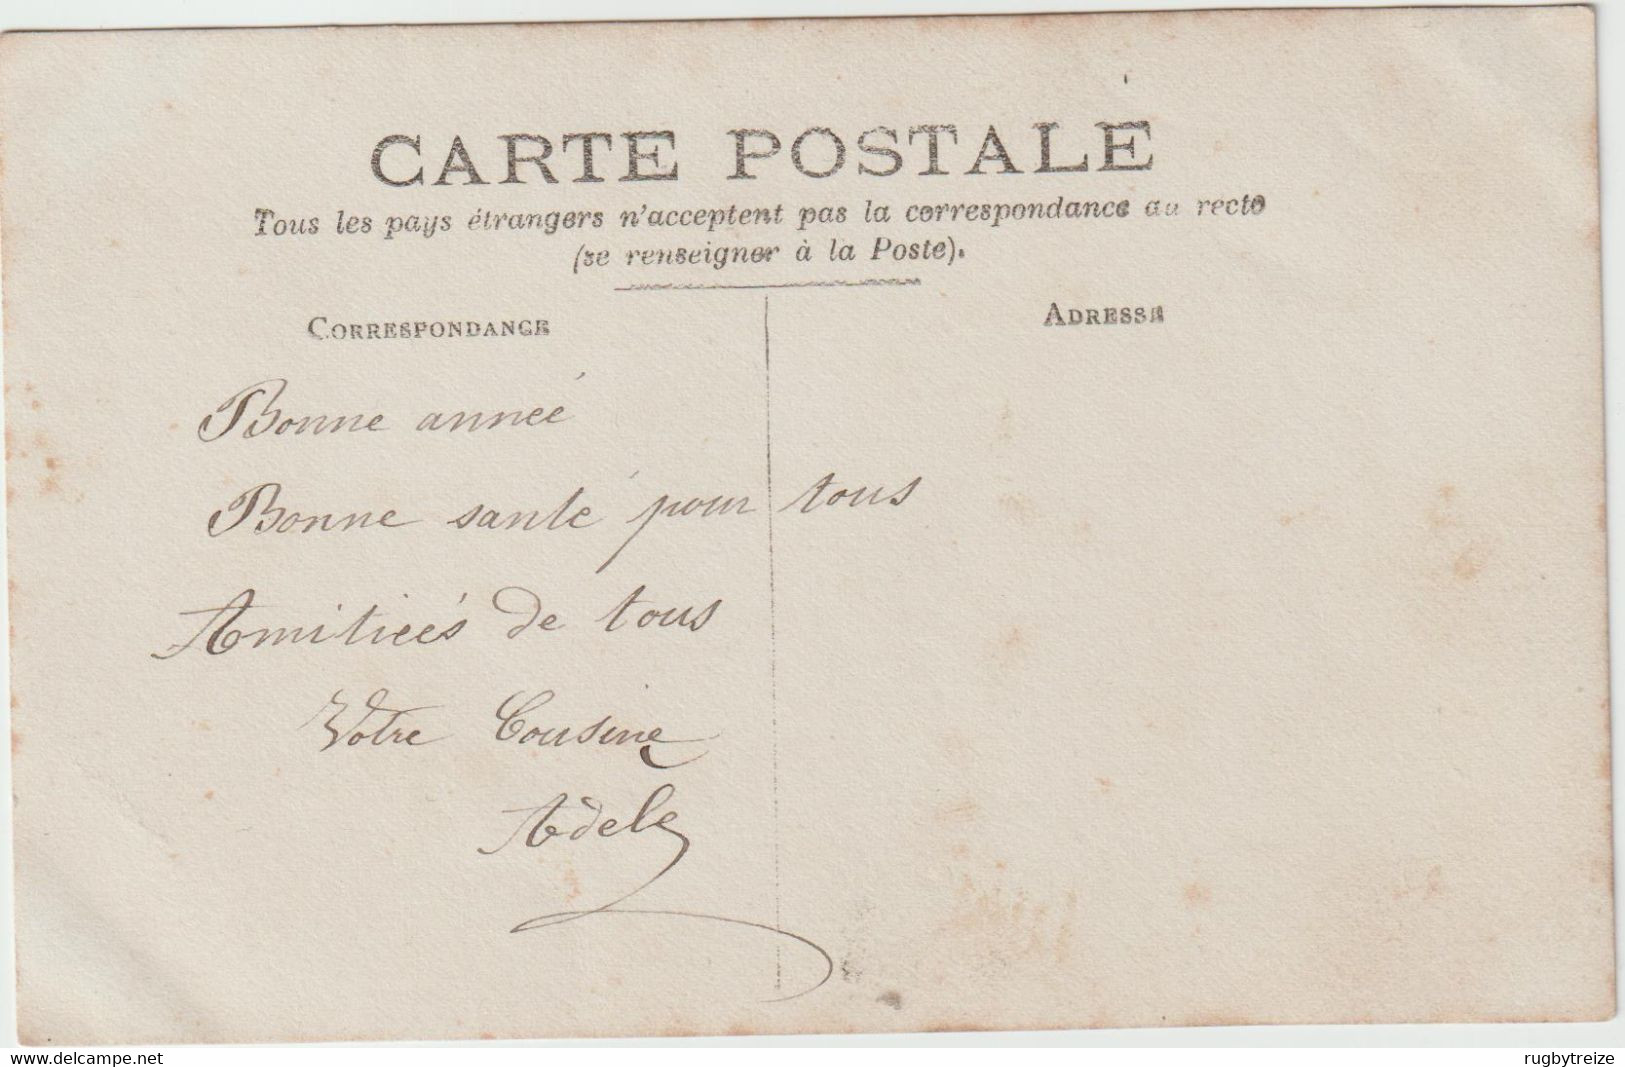 CARTE POSTALE
Tous les pays étrangers n'acceptent pas la correspondance au recto
(se renseigner à la Poste).
CORRESPONDANCE
ADRESSE
Bonne année
Bonne santé pour tous
Amitieés de tous
Votre Cousine
Adele
www.delcampe.net
rugbytreize